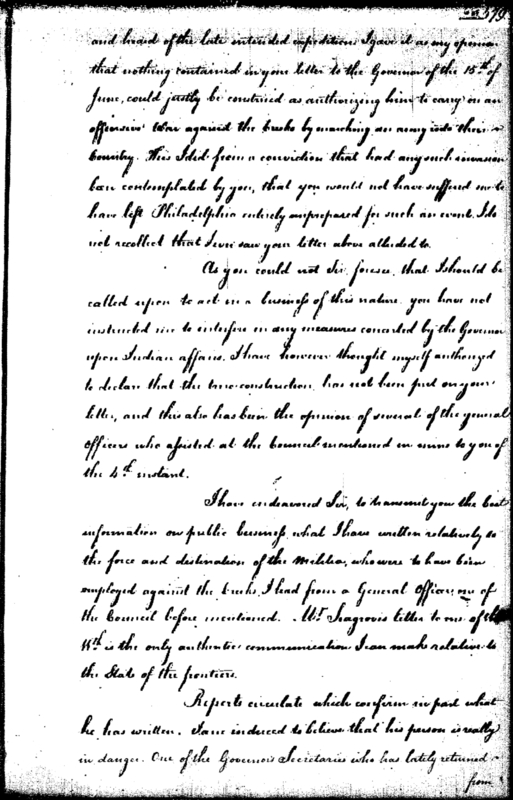 579
and heard of the late intended expedition I gave it as my opinion
that nothing contained in your letter to the Governor of the 15th of
June, could justly be construed as authorizing him to carry on an
offensive War against the Creeks by marching an army into their
Country. This I did from a conviction that had any such invasion
been contemplated by you, that you would not have suffered me to
have left Philadelphia entirely unprepared for such an event. I do
not recollect that I ever saw your letter above alluded to.
As you could not Sir, foresee, that I should be
called upon to act in a business of this nature, you have not
instructed me to interfere in any measures concerted by the Governor
upon Indian affairs. I have however thought myself authorized
to declare that the true construction, has not been put on your
letter, and this also has been the opinion of several of the general
Officers who assisted at the Council mentioned in mine to you of
the 4th instant.
I have endeavored Sir, to transmit you the best
information on public business, what I have written relatively to
the force and destination of the Militia, who were to have been
employed against the Creeks, I had from a General Officer, one of
the Council before mentioned. Mr. Seagroves letter to me of the
is the only authentic communication I can make relative to
the State of the frontiers.
Reports circulate which confirm in part what
he has written. I am induced to believe that his person is really
in danger. One of the Governor's Secretaries who has lately returned
from